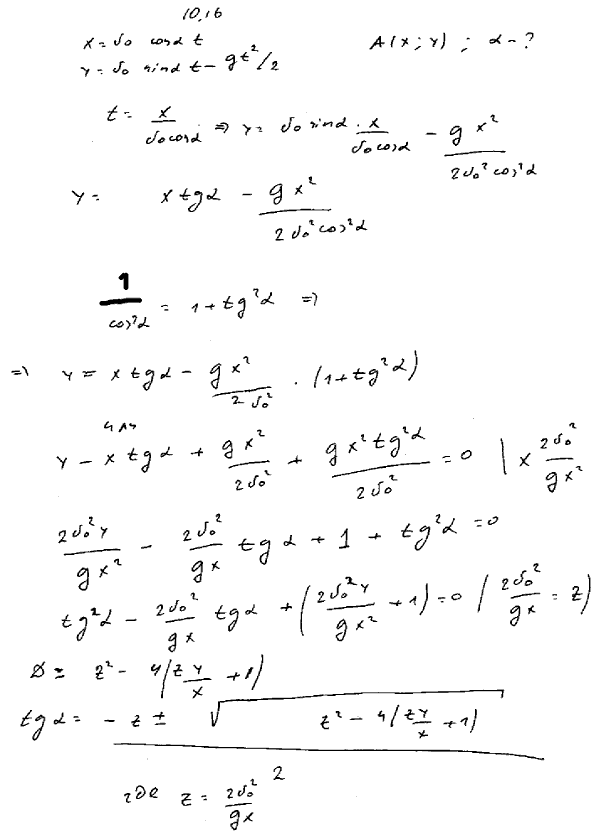 10.16
x = v₀ cosα t
A(x; y) ; α - ?
y = v₀ sinα t - gt²/2
t = x/(v₀cosα) ⇒ y = v₀ sinα · x/(v₀cosα) - gx²/(2v₀²cos²α)
y = x tgα - gx²/(2v₀²cos²α)
1/cos²α = 1 + tg²α ⇒
⇒ y = x tgα - gx²/(2v₀²) · (1 + tg²α)
y - x tgα + gx²/(2v₀²) + gx²tg²α/(2v₀²) = 0 | × 2v₀²/(gx²)
2v₀²y/(gx²) - 2v₀²/(gx) tgα + 1 + tg²α = 0
tg²α - 2v₀²/(gx) tgα + (2v₀²y/(gx²) + 1) = 0 / 2v₀²/(gx) = z)
D = z² - 4(z y/x + 1)
tgα = (- z ± √(z² - 4(z y/x + 1)))/2
где z = 2v₀²/(gx)